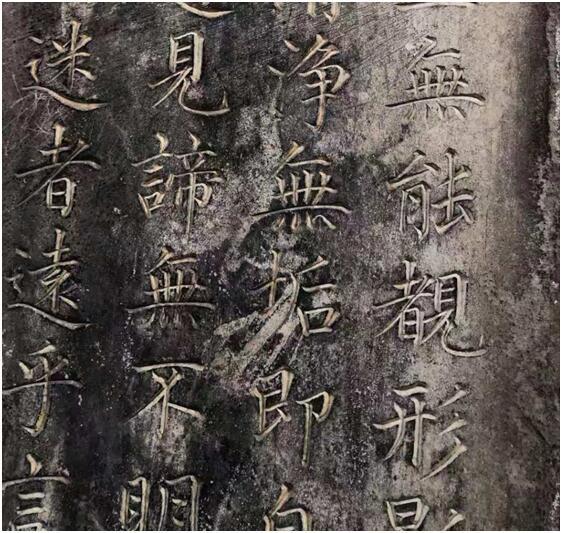 無能覩形影
清净無垢即自
見諦無不明
迷者遠乎